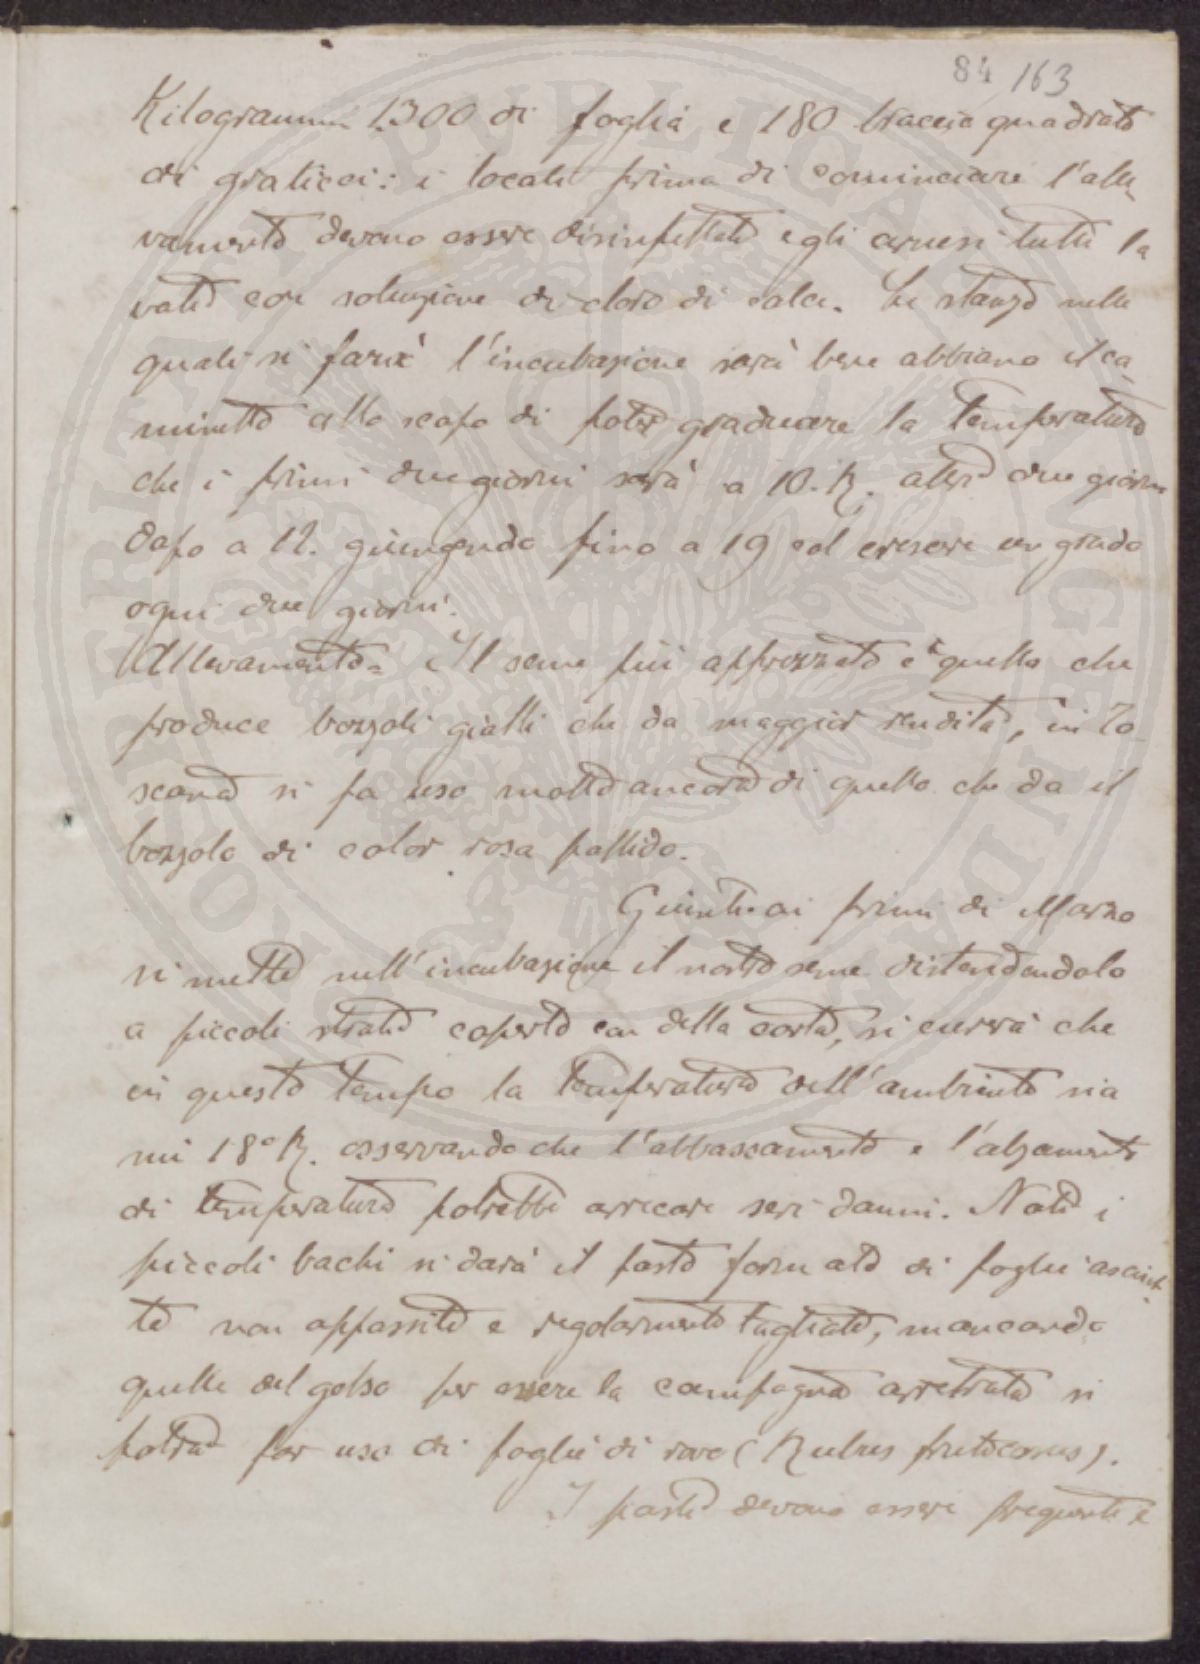 84 163
Kilogrammi 1300 di foglia e 180 braccia quadrate
di graticci: i locali prima di cominciare l'alle
vamento devono essere disinfettati e gli arnesi tutti la
vati con soluzione di cloro di calce. Le stanze nelle
quali si farà l'incubazione sarà bene abbiano il ca
minetto allo scopo di poter graduare la temperatura
che i primi due giorni sarà a 10. R. altri due giorni
dopo a 12. giungendo fino a 19 col crescere un grado
ogni due giorni.
Allevamento = Il seme più apprezzato è quello che
produce bozzoli gialli che da maggior rendita, in To
scana si fa uso molto ancora di quello che da il
bozzolo di color rosa pallido.
Giunti ai primi di Marzo
si mette nell'incubazione il nostro seme distendendolo
a piccoli strati coperto con della carta, si curerà che
in questo tempo la temperatura dell'ambiente sia
mi 18° R. osservando che l'abbassamento e l'alzamento
di temperatura potrebbe arrecare seri danni. Nati i
piccoli bachi si darà il pasto formato di foglie asciut
te non appassite e regolarmente tagliate, mancando
quelle del gelso per essere la campagna arretrata si
potrà far uso di foglie di rovo (Rubus fruticosus).
I pasti devono essere frequenti e
PVBLICA